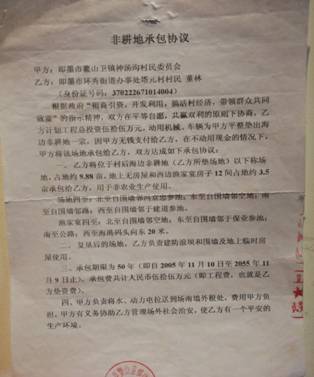 非耕地承包协议
甲方：即墨市鳌山卫镇神汤沟村民委员会
乙方：即墨市环秀街道办事处塔元村村民 董林
（身份证号码：370222671014004）
根据政府“招商引资，开发利用，搞活村经济，带领群众共同
致富”的指示精神，双方在平等自愿，共赢双利的原则下协商，乙
方计划工程总投资伍拾伍万元，动用机械、车辆为甲方平整垫出海
边非耕地一宗，因甲方无钱支付给乙方，在不动用现金的情况下，
甲方将该场地承包给乙方，双方达成如下承包协议：
一、乙方将位于村后海边非耕地（乙方所垫场地）以下称场
地，占地约 9.88 亩，地上无房屋和西边渔家宴房子 12 间占地约 3.5
亩承包给乙方，用于非农业生产使用。
场地四至：北至自围墙邻 东至自围墙邻空地；南
至自围墙邻路；西至自围墙邻于建忠参池。
渔家宴四至：北至自围墙邻空地；东至自围墙邻于保业参池；
南至公路；西至海港码头向东 20 米。
二、复垦后的场地，乙方负责建防浪坝和围墙及地上临时房
屋使用。
三、承包期限为 50 年（即自 2005 年 11 月 10 日至 2055 年 11
月 9 日止）。承包费共计人民币伍拾伍万元（即工程费，也就是乙
方垫资费）。
四、甲方负责将水、动力电拉送到场南墙外根处，费用甲方负
担，甲方有义务协助乙方管理场外社会治安，使乙方有一个平安的
生产环境。